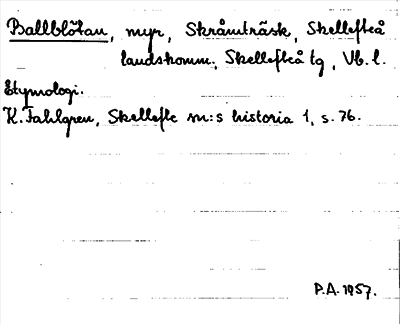 Ballblötan, myr, Skråmträsk, Skellefteå
landskomm., Skellefteå tg, Vb. l.
Etymologi.
K. Fahlgren, Skellefte sn:s historia 1, s. 76.
P.A. 1957.